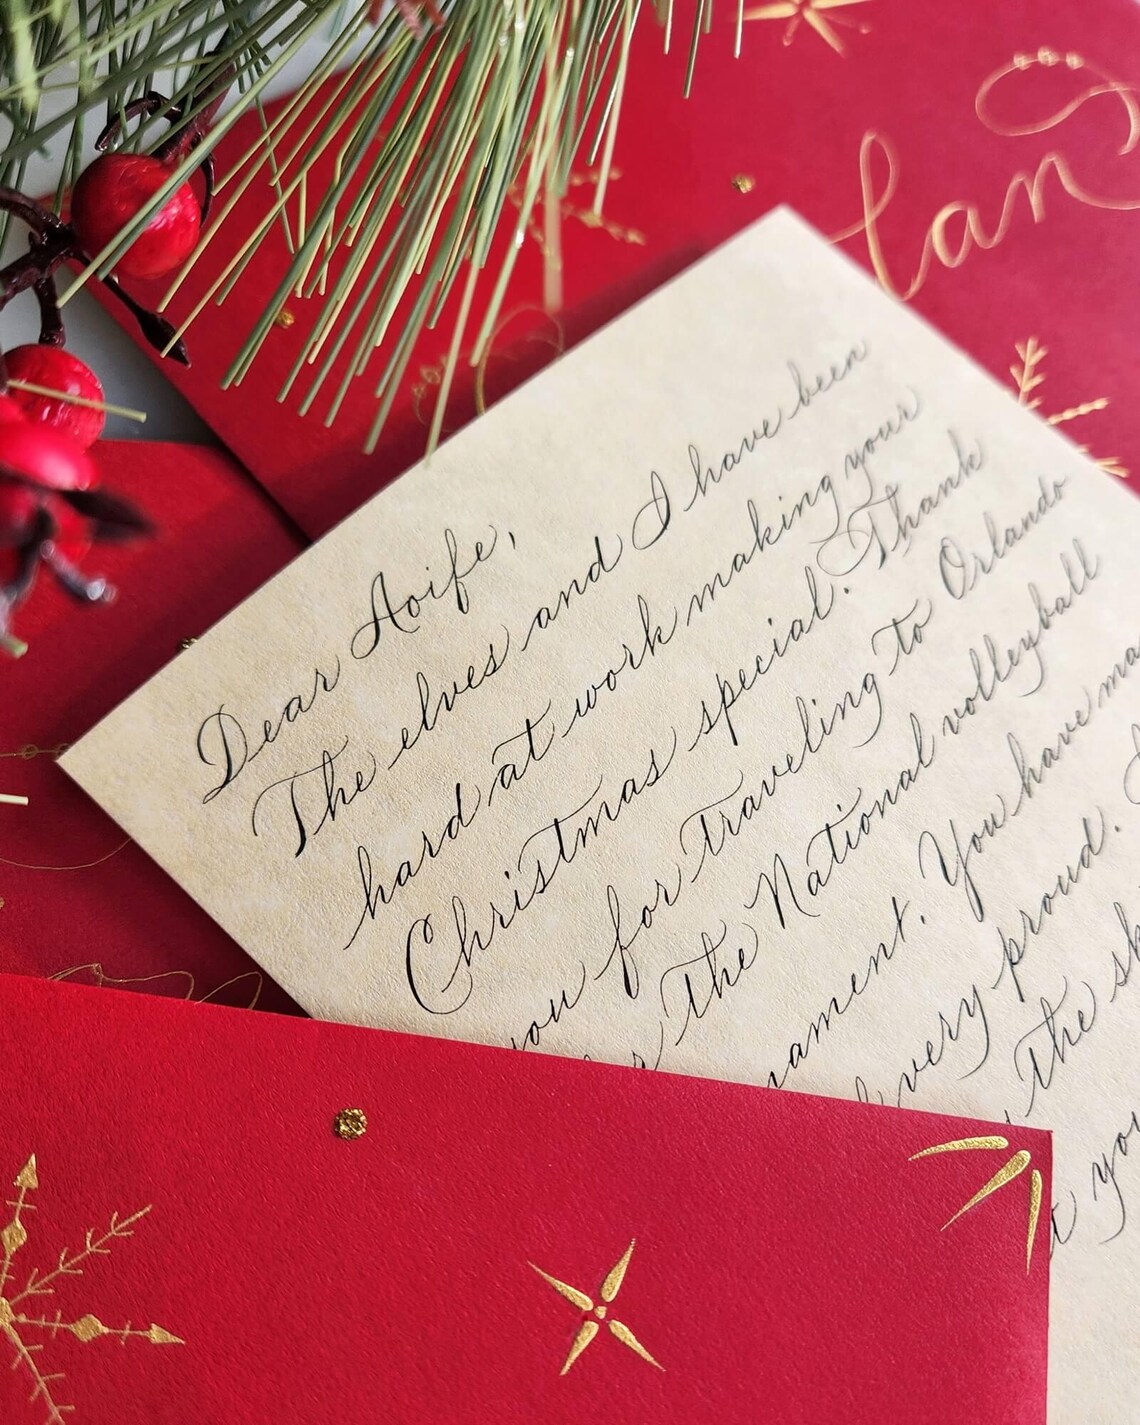 Dear Aoife,
The elves and I have been
hard at work making your
Christmas special. Thank
you for traveling to Orlando
the National volleyball
You have
very proud.
the
you